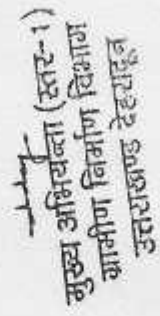 मुख्य अभियन्ता (स्तर-1)
ग्रामीण निर्माण विभाग
उत्तराखण्ड देहरादून